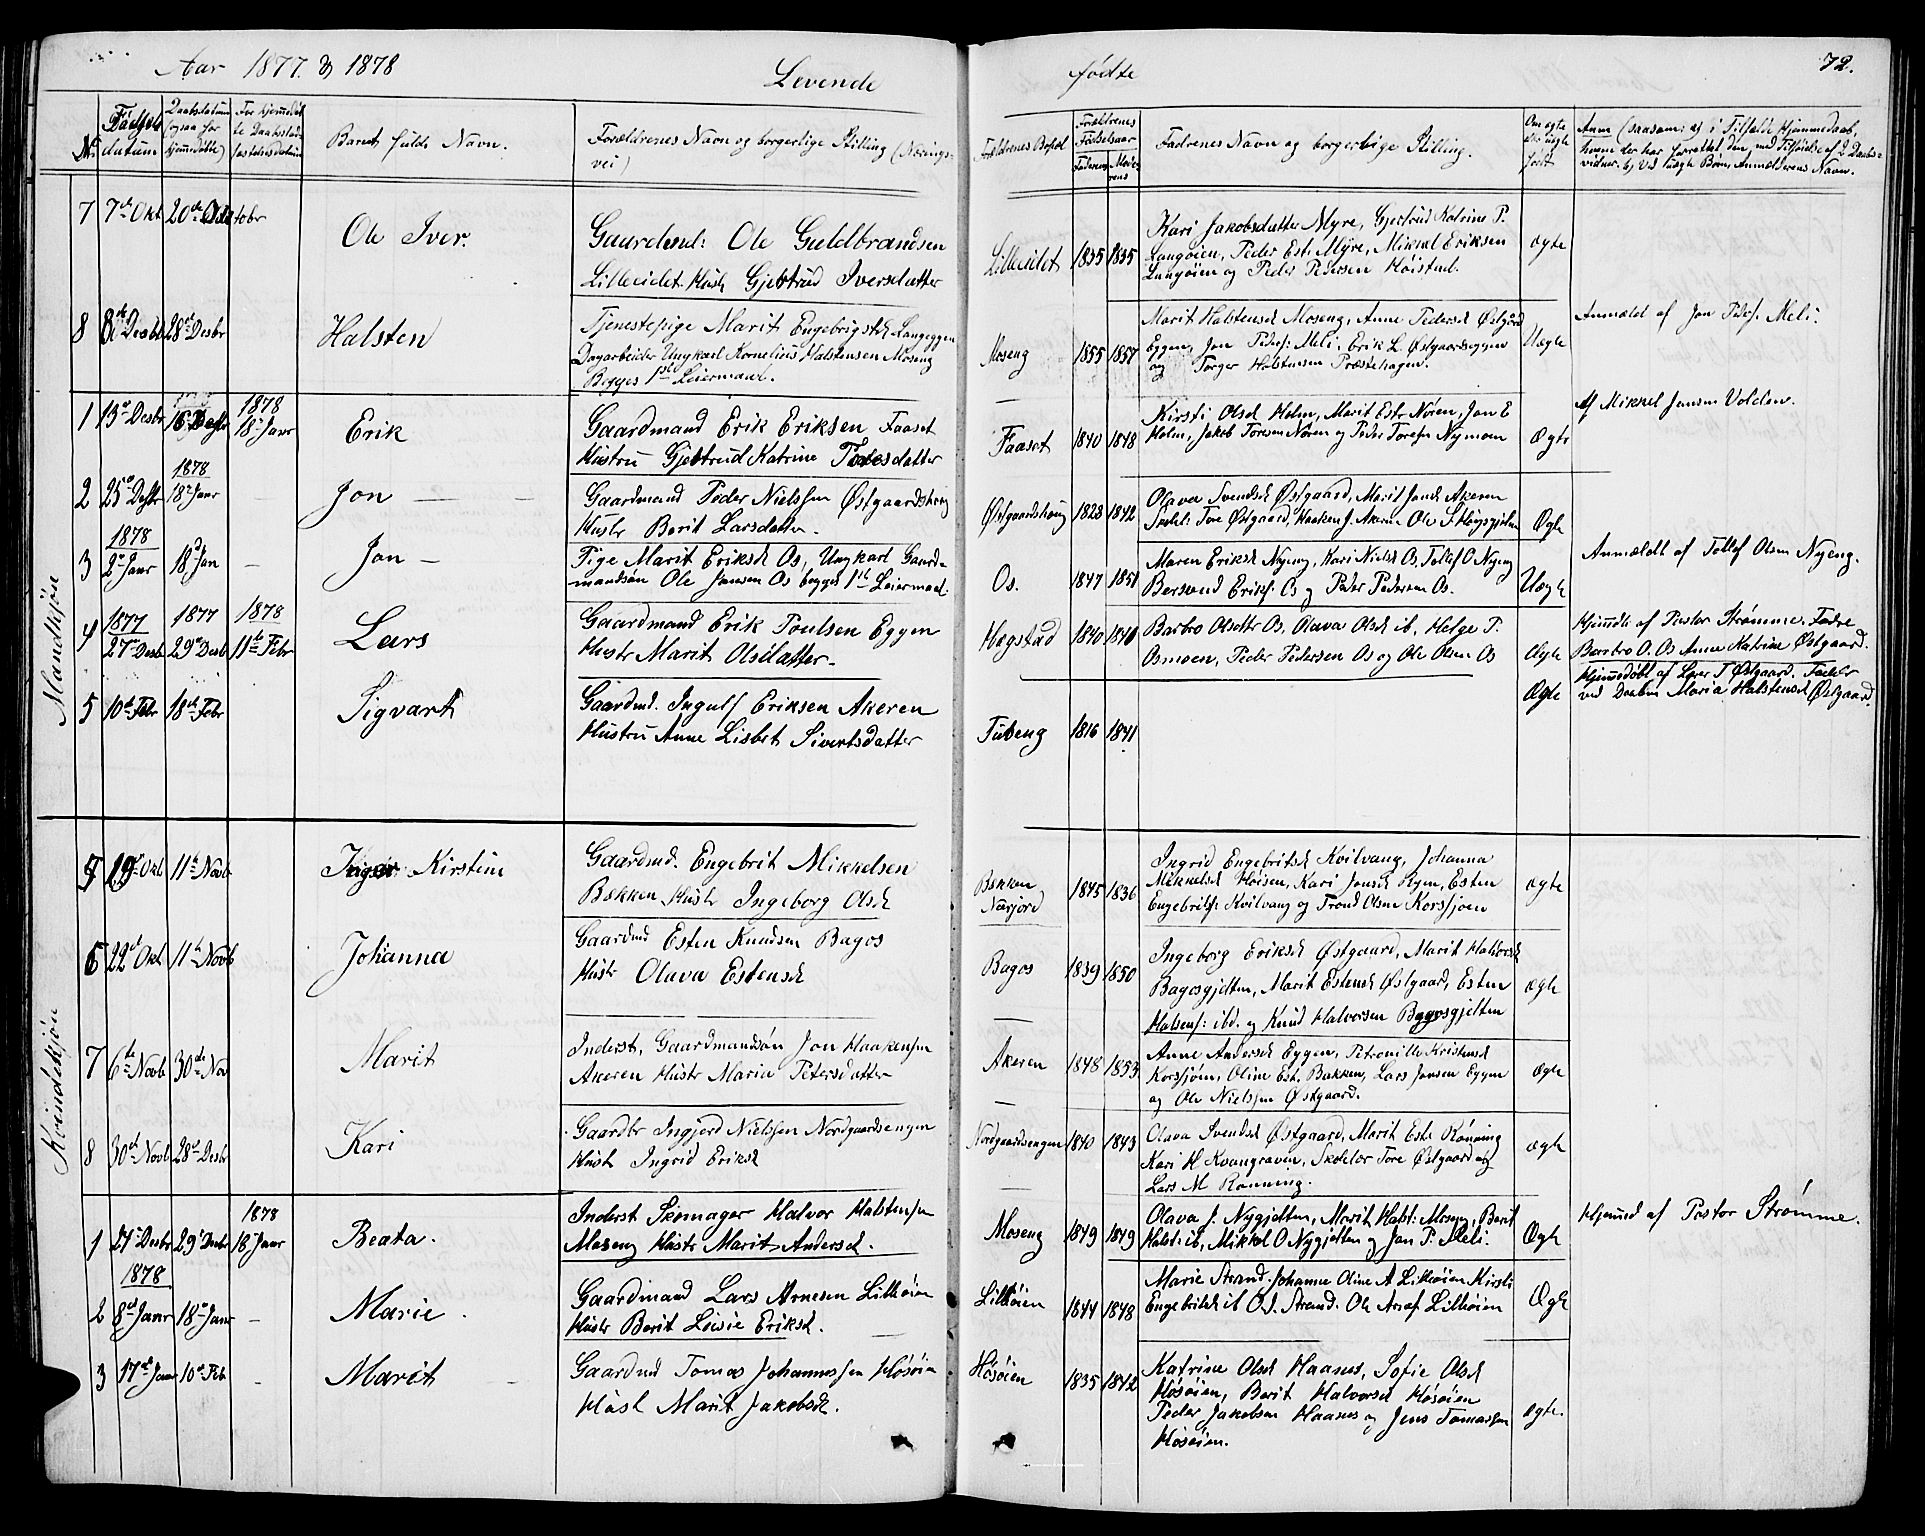 Aar 1877 & 1878
Levende
fødte
72.
No.
Fødsels datum
Daabsdatum (ogsaa for hjemmedøbte)
For hjemmedøbte Daabsstadfæstelsesdatum
Barnets fulde Navn.
Forældrenes Navn og borgerlige Stilling (Næringsvei)
Forældrenes Bopæl
Forældrenes Fødselsaar
Faderens
Moderens
Fadrenes Navn og borgerlige Stilling.
Om ægte eller uægte født
Anm (saasom: a) i Tilfælde Hjemmedaab, hvem der har forrettet den, med Tilføielse af 2 Daabsvidner. b) Ved uægte Børn, Anmelderens Navn.
Mandkjøn
7 7de Okt 20de Oktober
Ole Iver.
Gaardmd: Ole Guldbrandsen
Lilleeidet Hustr Gjertrud Iversdatter
Lilleeidet 1835 1835
Kari Jakobsdatter Myre, Gjertrud Katrine P.
Langøien, Peder Est. Myre, Mikkel Eriksen
Langøien og Peder Pedersen Høistad.
Ægte
8 8de Desbr 28de Desbr
Halsten
Tjenestepige Marit Engebrigtsd Langeggen
Dagarbeider Ungkarl Kornelius Halstensen Moseng
Begges 1ste Leiermaal.
Moseng 1855 1857
Marit Halstensd Moseng, Anne Pedersd Østgård
Eggen, Jon Peders: Meli, Erik L. Østgaardseggen
og Torger Halstensen Præstehagen.
Uægte
Anmeldt af Jon Peders. Meli.
1 13de Desbr 16 Desbr 1878 18de Janr
Erik
Gaardmand Erik Eriksen Faaset
Hustru Gjertrud Katrine Toresdatter
Faaset 1840 1848
Kirsti Olsd Holm, Marit Estr Nøren, Jon E
Holm, Jakob Toresen Nøren og Peder Toresn Nymoen
Ægte
Af Mikkel Jensen Volden.
2 25de Desbr 1878 18de Janr
Jon
Gaardmand Peder Nielssen Østgaardshaug
Hustr Berit Larsdatter
Østgaardshaug 1823 1842
Olava Svendsd Østgaard, Marit Jonsd Akeren
Skolel: Tore Østgaard, Haaken J. Akeren Ole S. Haugsgjelten
Ægte
3 1878 2den Janr 18de Jan
Jon
Pige Marit Eriksd Os, Ungkarl Gaard-
mandsøn Ole Jonsen Os begges 1ste Leiermaal.
Os. 1847 1851
Maren Eriksd Nyeng, Kari Nielsd Os, Tollef O Nyeng
Bersvend Eriks. Os og Peder Pedersen Os.
Uægte
Anmeldt af Tollef Olsen Nyeng.
4 1877 27de Desb 1877 29de Desb 1878 11te Febr
Lars
Gaardmand Erik Poulsen Eggen
Hustr Marit Olsdatter
Høgstad 1840 1840
Barbro Olsdttr Os, Olava Olsd ib, Helge P.
Osmoen, Peder Pedersen Os og Ole Olsen Os
Ægte
Hjemdb af Pastor Strømme. Fadre
Barbro O. Os Anne Katrine Østgaard.
5 10de Febr 18de Febr
Sigvart
Gaardmd. Ingulf Eriksen Akeren
Hustru Anne Lisbet Sivertsdatter
Tubeng 1816 1841
Ægte
Hjemmedøbt af Lærer T Østgaard. Fadder
ved Daaben Maria Halstensd Østgaard.
Kvindekjøn
5 19de Okt 11te Novb
Inger Kirstine
Gaardmd. Engebrit Mikkelsen
Bekken Hustr Ingeborg Olsd
Bekken Narjord 1845 1836
Ingrid Engebritsd Kvilvang, Johanna
Mikkelsd Høisen, Kari Jonsd Ryen, Esten
Engebrits: Kvilvang og Trond Olsen Korssjøen
Ægte
6 22de Okt 11te Novb
Johanna
Gaardmd Esten Knudsen Bagos
Hustr Olava Estensd
Bagos 1839 1850
Ingeborg Eriksd Østgaard, Marit Halvorsd
Bagosgjelten, Marit Estensd Østgaard, Esten
Halsens: ibd. og Knud Halvorsen Bagosgjelten
Ægte
7 6te Novb 30de Nov
Marit
Inderst, Gaardmandsøn Jon Haakensen
Akeren Hustr Maria Petersdatter
Akeren 1848 1853
Anne Andersd Eggen, Petronille Kristensd
Korssjøen, Oline Est. Bakken, Lars Jonsen Eggen
og Ole Nielssen Østgaard.
Ægte
8 30de Novb 28de Desbr
Kari
Gaardbr Ingjerd Nielssen Nordgaardsengen
Hustr Ingrid Eriksd
Nordgaardsengen 1840 1843
Olava Svendsd Østgaard, Marit Este Rønning
Kari H Kvangraven, Skolelær Tore Østgaard og
Lars M Rønning.
Ægte
1 27de Desbr 29de Desbr 1878 18de Janr
Beata.
Inderst Skomager Halvor Halstensen
Moseng Hustr Marit Andersd.
Moseng 1849 1849
Olava J. Nygjelten, Marit Halst: Moseng, Berit
Halst: ib, Mikkel O Nygjelten og Jon P. Meli.
Ægte
Hjemmed af Pastor Strømme.
2 1878 8de Janr 18de Janr
Marie
Gaardmand Lars Arnesen Lilleøien
Hustr Berit Lovise Eriksd.
Lilleøien 1844 1848
Marie Strand. Johanne Oline A Lilleøien Kirsti
Engebritsd ib O.J. Strand. Ole Arnes. Lilleøien
Ægte
3 17de Janr 10de Feb
Marit
Gaardmd Tomas Johannessen Høsøien
Hustr Marit Jakobsd.
Høsøien 1835 1842
Katrine Olsd Haanes, Sofie Olsd
Høsøien, Berit Halvorsd Høsøien
Peder Jakobsen Haanes og Jens Tomassen
Høsøien.
Ægte.